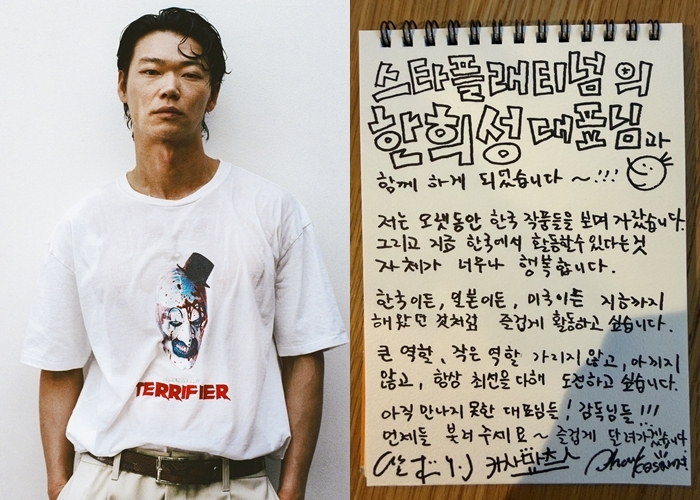 TERRIFIER
스타플래티넘의
한희성 대표님과
함께 하게 되었습니다 ~!!!
저는 오랫동안 한국 작품들을 보며 자랐습니다.
그리고 지금 한국에서 활동할수있다는것
자체가 너무나 행복합니다.
한국이든, 일본이든, 미국이든 지금까지
해왔던 것처럼 즐겁게 활동하고 싶습니다.
큰 역할, 작은 역할 가리지 않고, 아끼지
않고, 항상 최선을 다해 도전하고 싶습니다.
아직 만나지 못한 대표님들! 감독님들!!!
언제든 불러주세요~ 즐겁게 달려가겠습니다
카사마츠